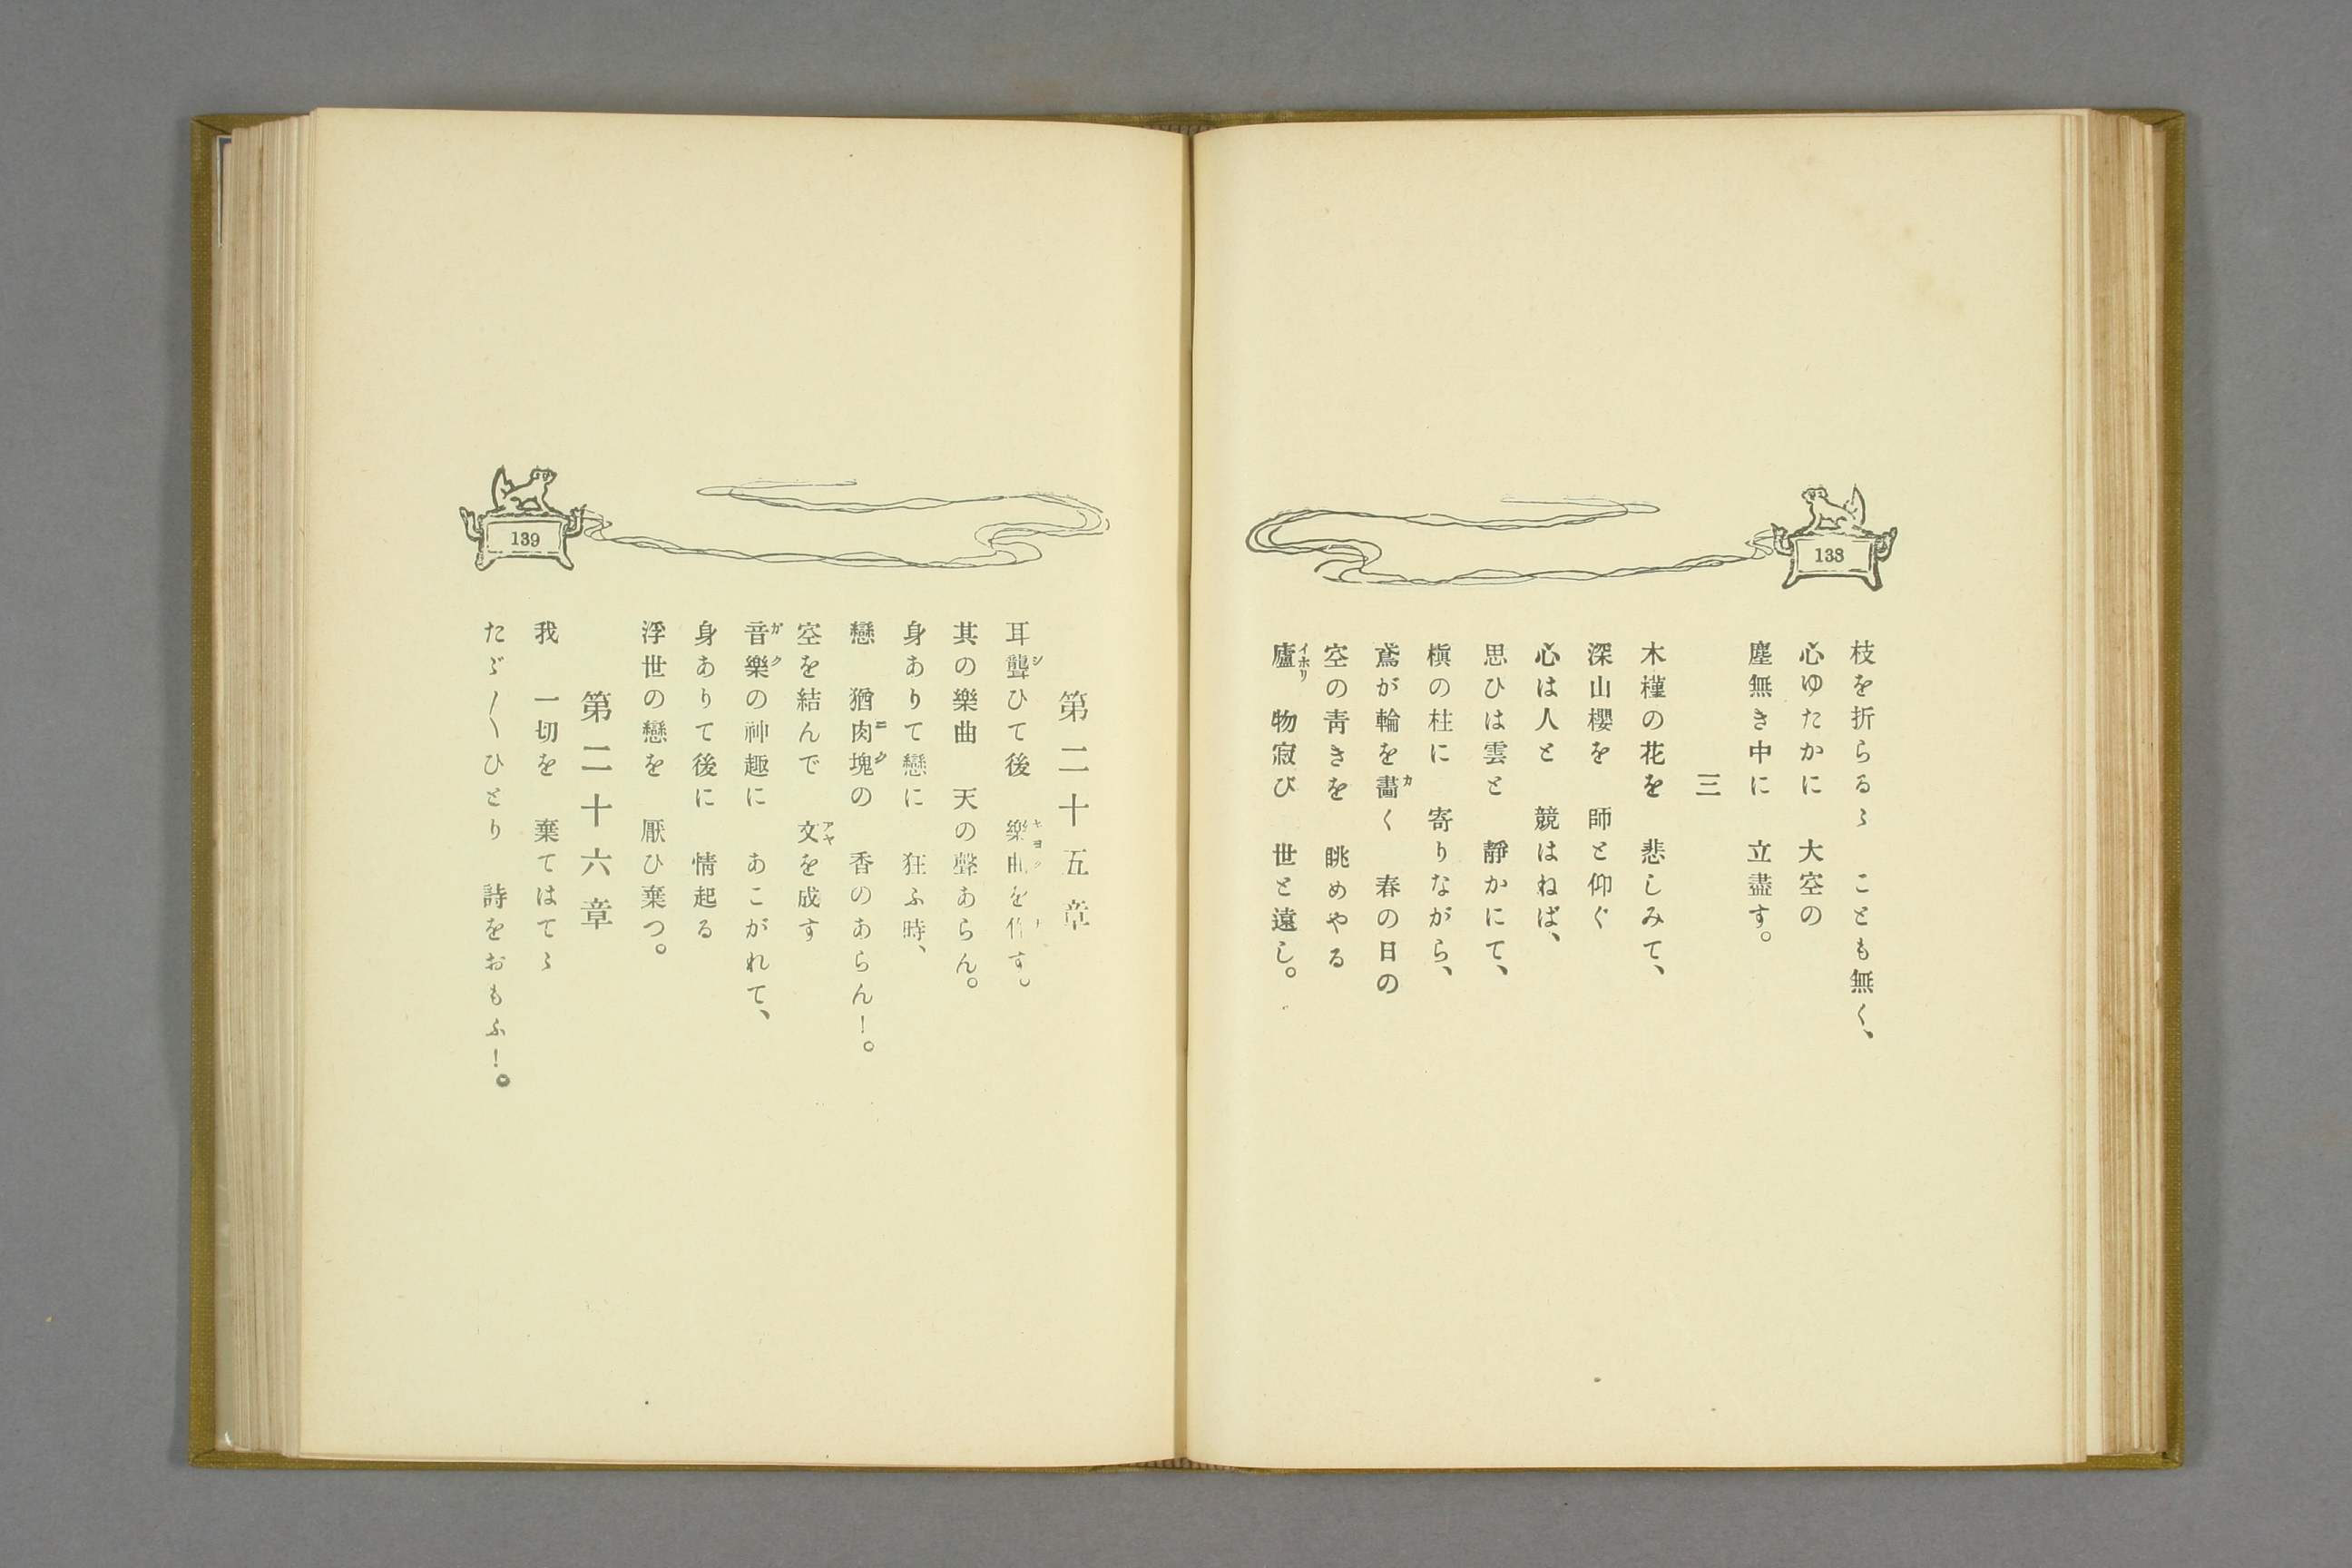 138
枝を折らるゝ　ことも無く、
心ゆたかに　大空の
塵無き中に　立盡す。
三
木槿の花を　悲しみて、
深山櫻を　師と仰ぐ
心は人と　競はねば、
思ひは雲と　靜かにて、
槇の柱に　寄りながら、
鳶が輪を畵く　春の日の
空の靑きを　眺めやる
廬　物寂び　世と遠し。
139
第二十五章
耳聾ひて後　樂曲を作す。
其の樂曲　天の聲あらん。
身ありて戀に　狂ふ時、
戀　猶肉塊の　香のあらん！。
空を結んで　文を成す
音樂の神趣に　あこがれて、
身ありて後に　情起る
浮世の戀を　厭ひ棄つ。
第二十六章
我　一切を　棄てはてゝ
たゞ〱ひとり　詩をおもふ！。